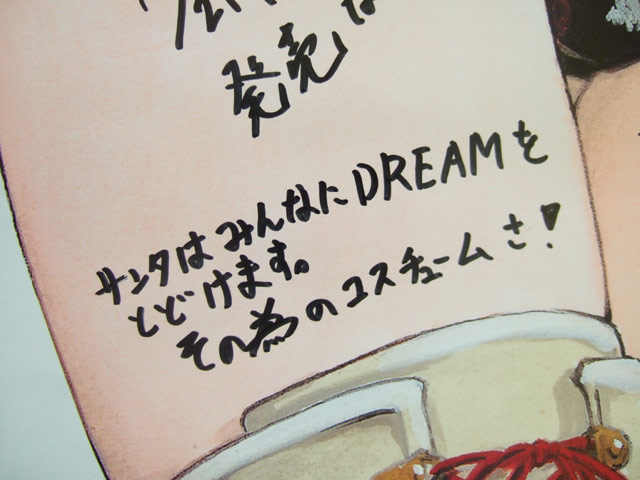 な
発売
サンタはみんなにDREAMを
とどけます。
その為のコスチュームさ!